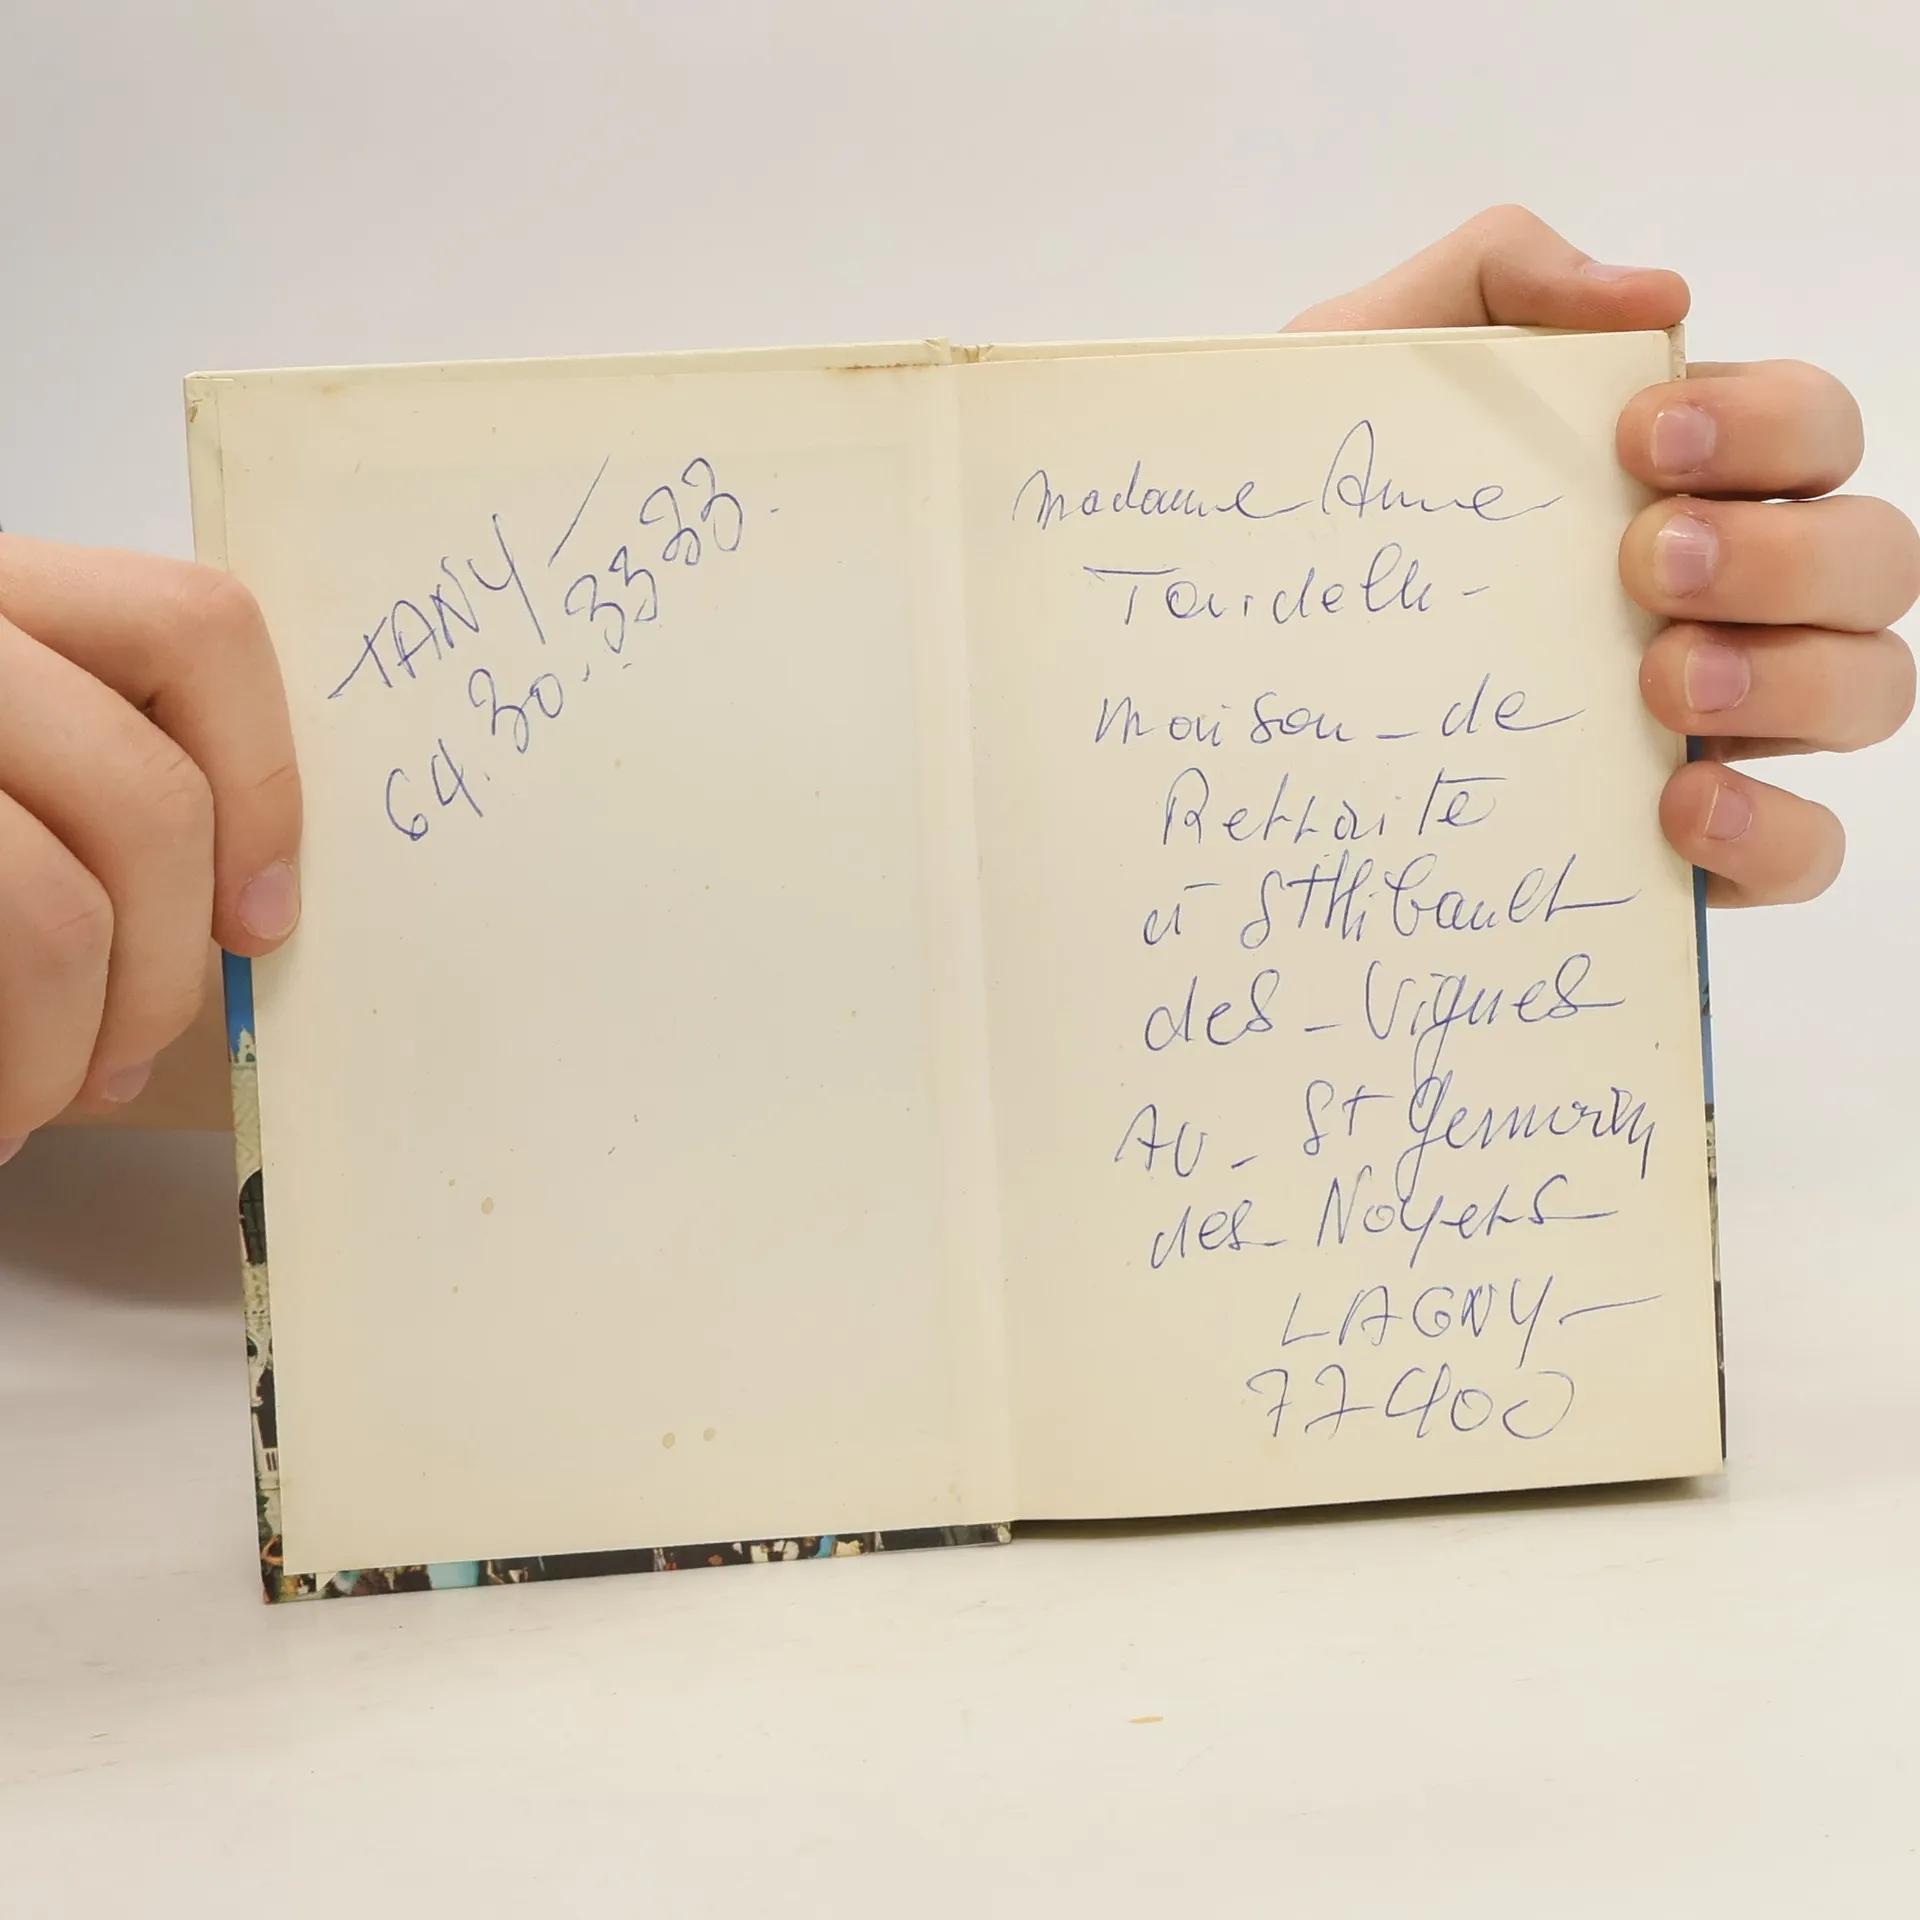 TANY
64.30..33 33 33.
Madame Anne
Maison - de
Retraite
à St Thibault
des - Vignes
Av - St Germain
des Noyers
LAGNY -
77400